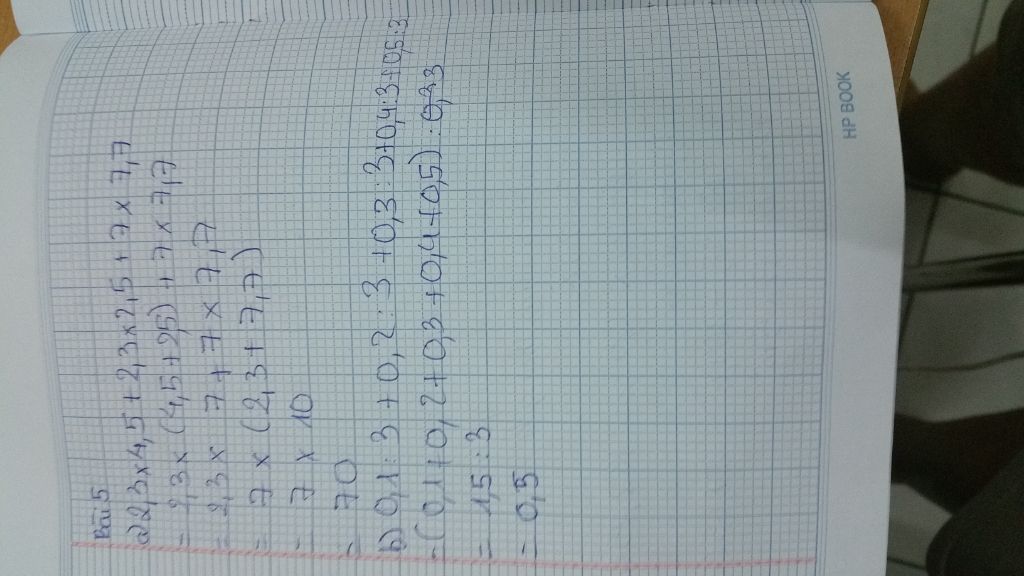 Bài 5
a) 2,3 x 4,5 + 2,3 x 2,5 + 7 x 7,7
= 2,3 x (4,5 + 2,5) + 7 x 7,7
= 2,3 x 7 + 7 x 7,7
= 7 x (2,3 + 7,7)
= 7 x 10
= 70
b) 0,1 : 3 + 0,2 : 3 + 0,3 : 3 + 0,4 : 3 + 0,5 : 3
= (0,1 + 0,2 + 0,3 + 0,4 + 0,5) : 3
= 1,5 : 3
= 0,5
HP BOOK